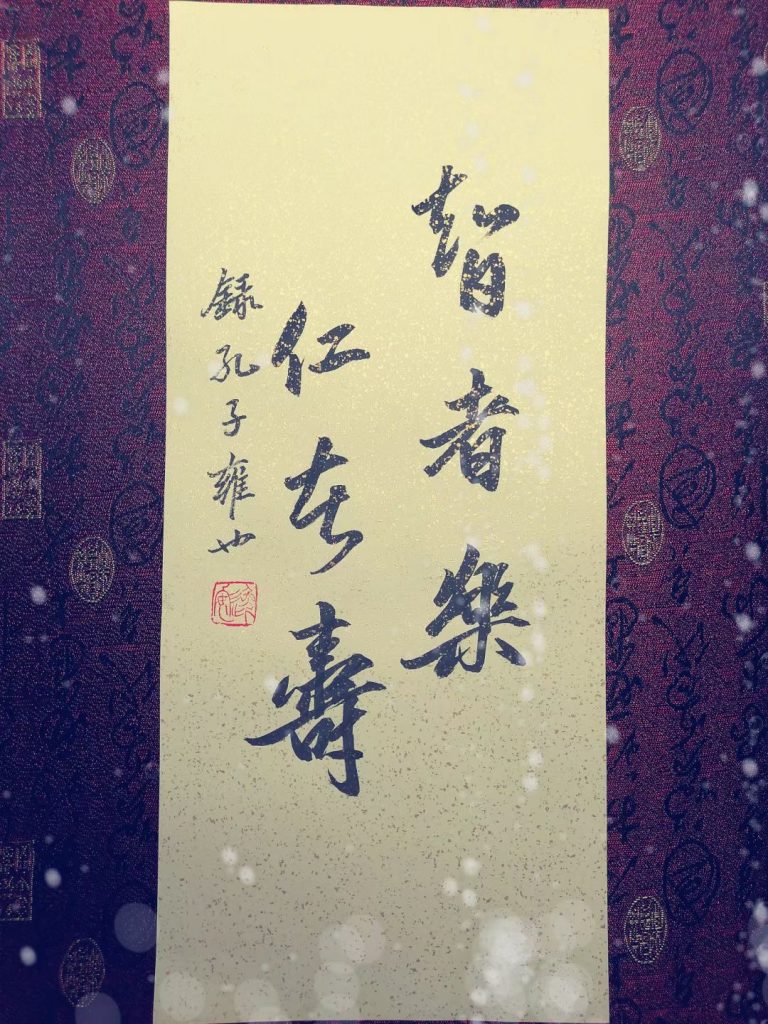 智者樂
仁者壽
錄孔子雍也